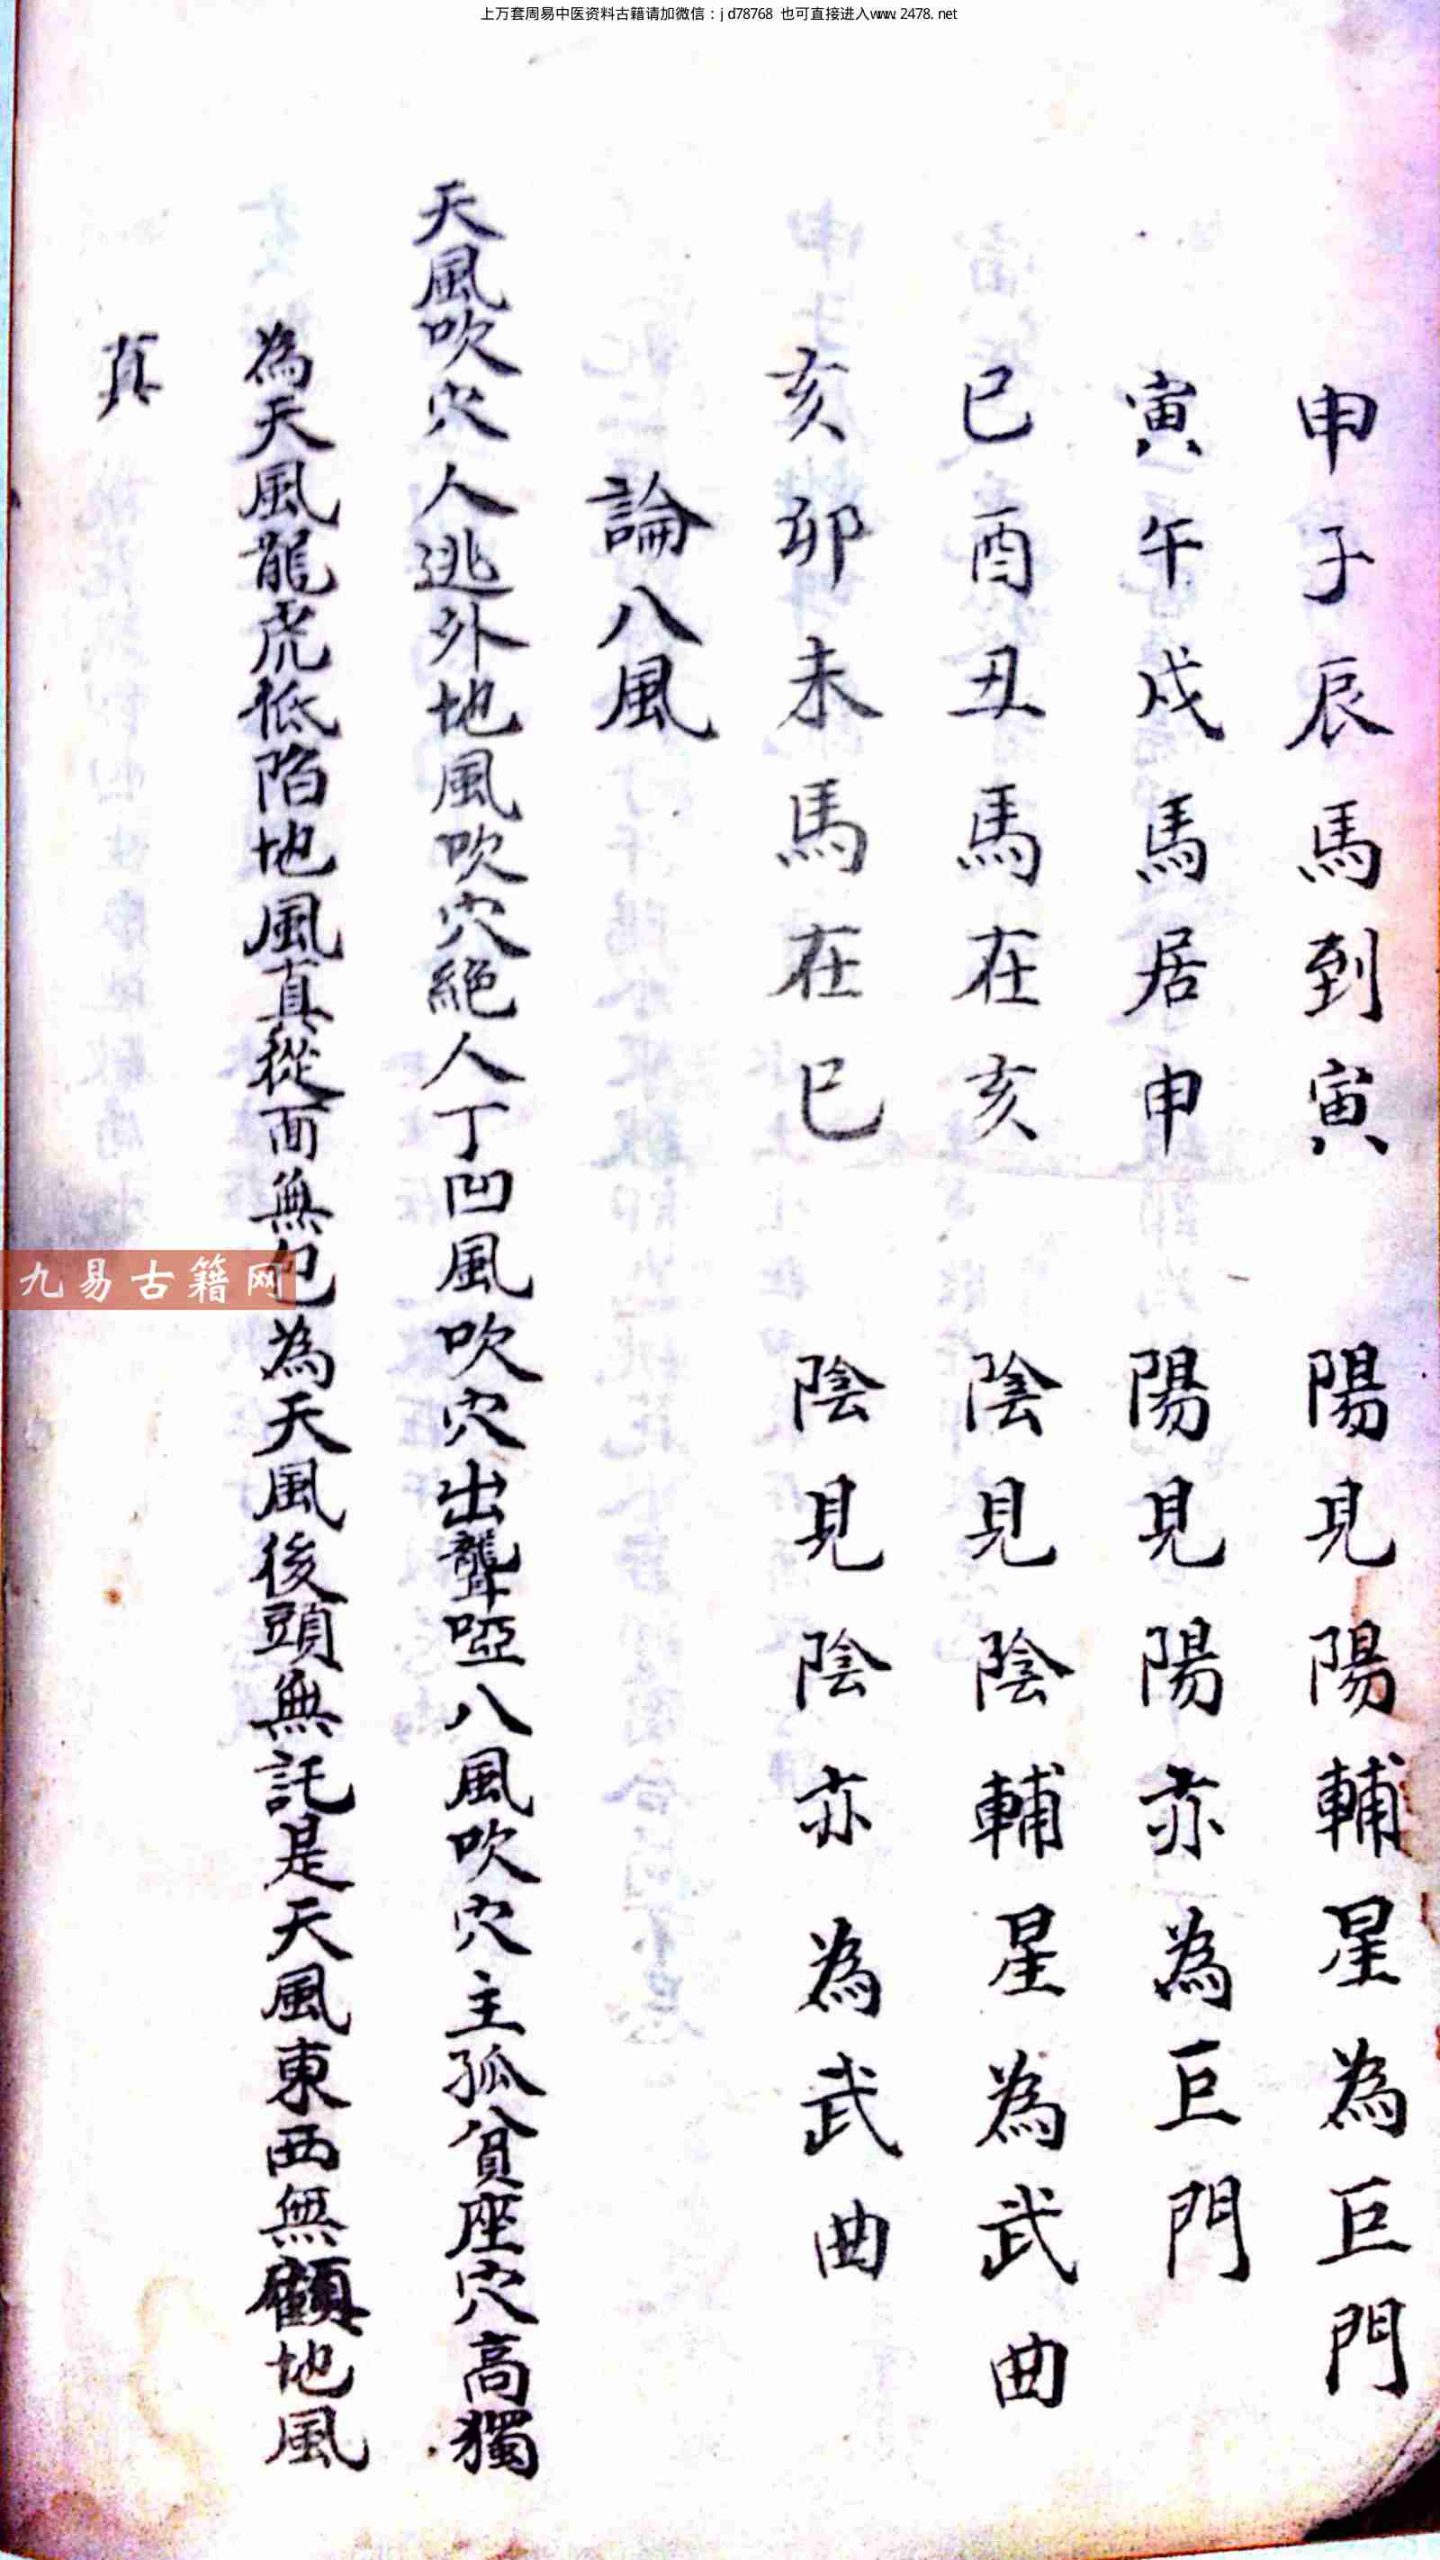 上万套周易中医资料古籍请加微信：jd78768 也可直接进入www.2478.net
申子辰馬到寅 陽見陽輔星為巨門
寅午戌馬居申 陽見陽亦為巨門
巳酉丑馬在亥 陰見陰輔星為武曲
亥卯未馬在巳 陰見陰亦為武曲
論八風
天風吹穴人逃外地風吹穴絕人丁凹風吹穴出聾啞八風吹穴主孤貧座穴高獨
為天風龍虎低陷地風真從面無包為天風後頭無託是天風東西無顧地風
真
九易古籍网